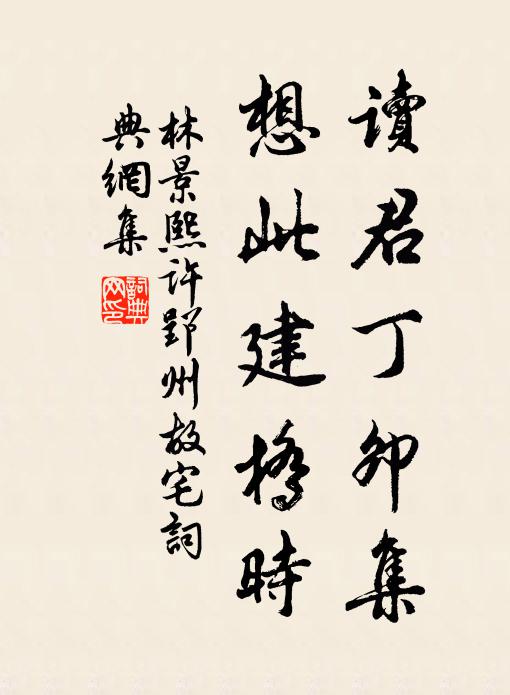 讀君丁卯集
想此建橋時
林景熙許郢州故宅詞
典網集
詞典網印